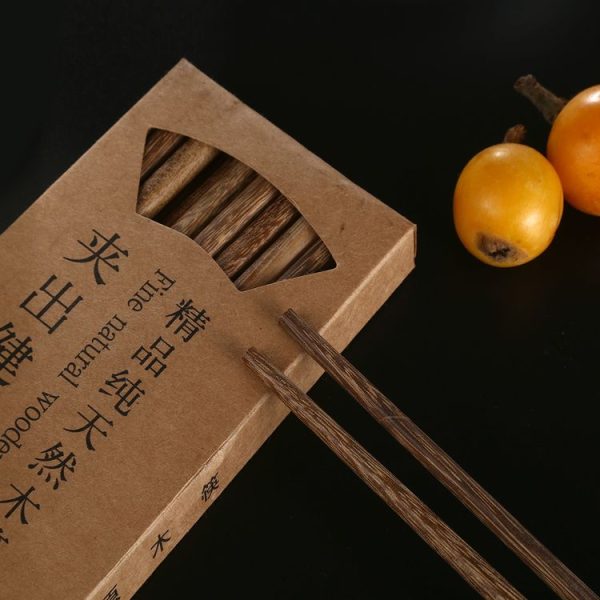 夹出健
精品纯天然木
Fine natural wooden
木筷